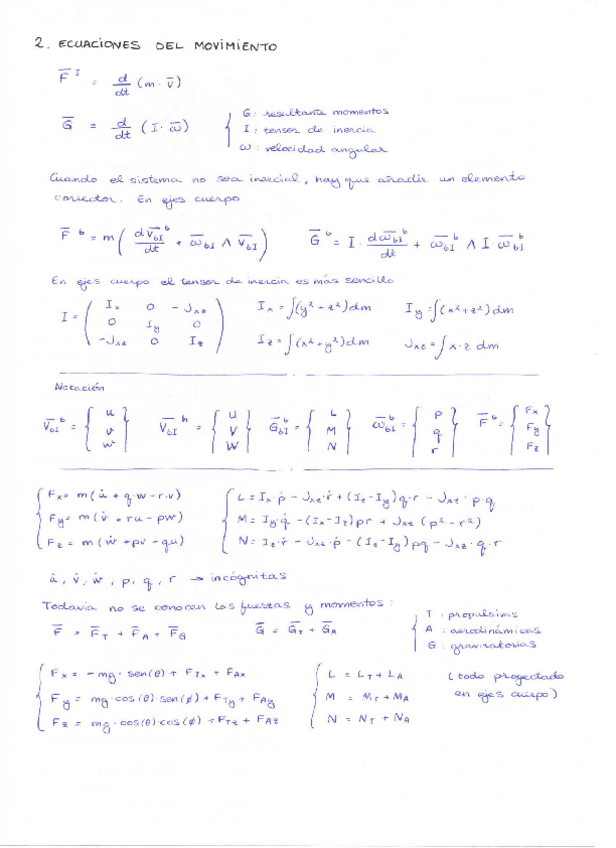 2. ECUACIONES DEL MOVIMIENTO
F̅ ᴵ = d/dt (m · v̅)
G̅ = d/dt (I · ω̅) { G: resultante momentos
I: tensor de inercia
ω: velocidad angular
Cuando el sistema no sea inercial, hay que añadir un elemento
corrector. En ejes cuerpo
F̅ ᵇ = m ( dV̅bI ᵇ/dt + ω̅bI ∧ V̅bI ) G̅ ᵇ = I · dω̅bI ᵇ/dt + ω̅bI ᵇ ∧ I · ω̅bI ᵇ
En ejes cuerpo el tensor de inercia es más sencillo
I = ( Ix 0 -Jxz ; 0 Iy 0 ; -Jxz 0 Iz ) Ix = ∫(y² + z²)dm Iy = ∫(x² + z²)dm
Iz = ∫(x² + y²)dm Jxz = ∫ x · z dm
Notación
V̅bI ᵇ = { u v w } V̅bI ʰ = { U V W } G̅bI ᵇ = { L M N } ω̅bI ᵇ = { p q r } F̅ ᵇ = { Fx Fy Fz }
Fx = m(u̇ + q·w - r·v) L = Ix·ṗ - Jxz·ṙ + (Iz-Iy)q·r - Jxz · p·q
Fy = m(v̇ + ru - pw) M = Iy·q̇ - (Ix-Iz)pr + Jxz (p² - r²)
Fz = m(ẇ + pv - qu) N = Iz·ṙ - Jxz·ṗ - (Iz-Iy)pq - Jxz · q·r
u̇, v̇, ẇ, p, q, r → incógnitas
Todavía no se conocen las fuerzas y momentos:
F̅ = F̅T + F̅A + F̅G G̅ = G̅T + G̅A { T: propulsivas
A: aerodinámicas
G: gravitatorias
Fx = -mg · sen(θ) + FTx + FAx L = LT + LA (todo proyectado
Fy = mg · cos(θ) · sen(ϕ) + FTy + FAy M = MT + MA en ejes cuerpo)
Fz = mg · cos(θ) cos(ϕ) + FTz + FAz N = NT + NA